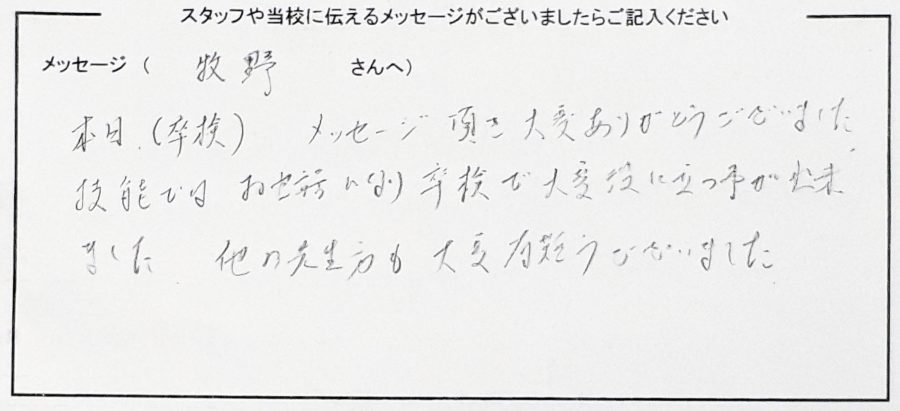 スタッフや当校に伝えるメッセージがございましたらご記入ください
メッセージ ( 牧野 さんへ)
本日.(卒検) メッセージ 頂き大変ありがとうございました.
技能では お世話になり 卒検で大変役に立つ事が出来
ました 他の先生方も 大変有難うございました